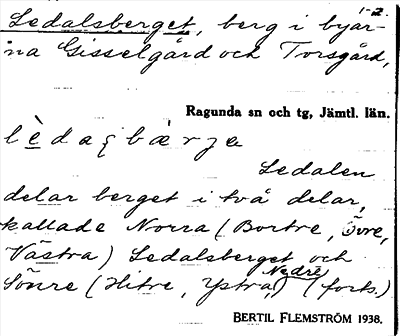 1-2.
Ledalsberget, berg i byar-
na Gisselgård och Torsgård,
Ragunda sn och tg, Jämtl. län.
lèdaʂbærja
Ledalen
delar berget i två delar,
kallade Norra (Bortre, Övre,
Västra) Ledalsberget och
Nedre
Sönre (Hitre, Ystra,) (forts.)
BERTIL FLEMSTRÖM 1938.